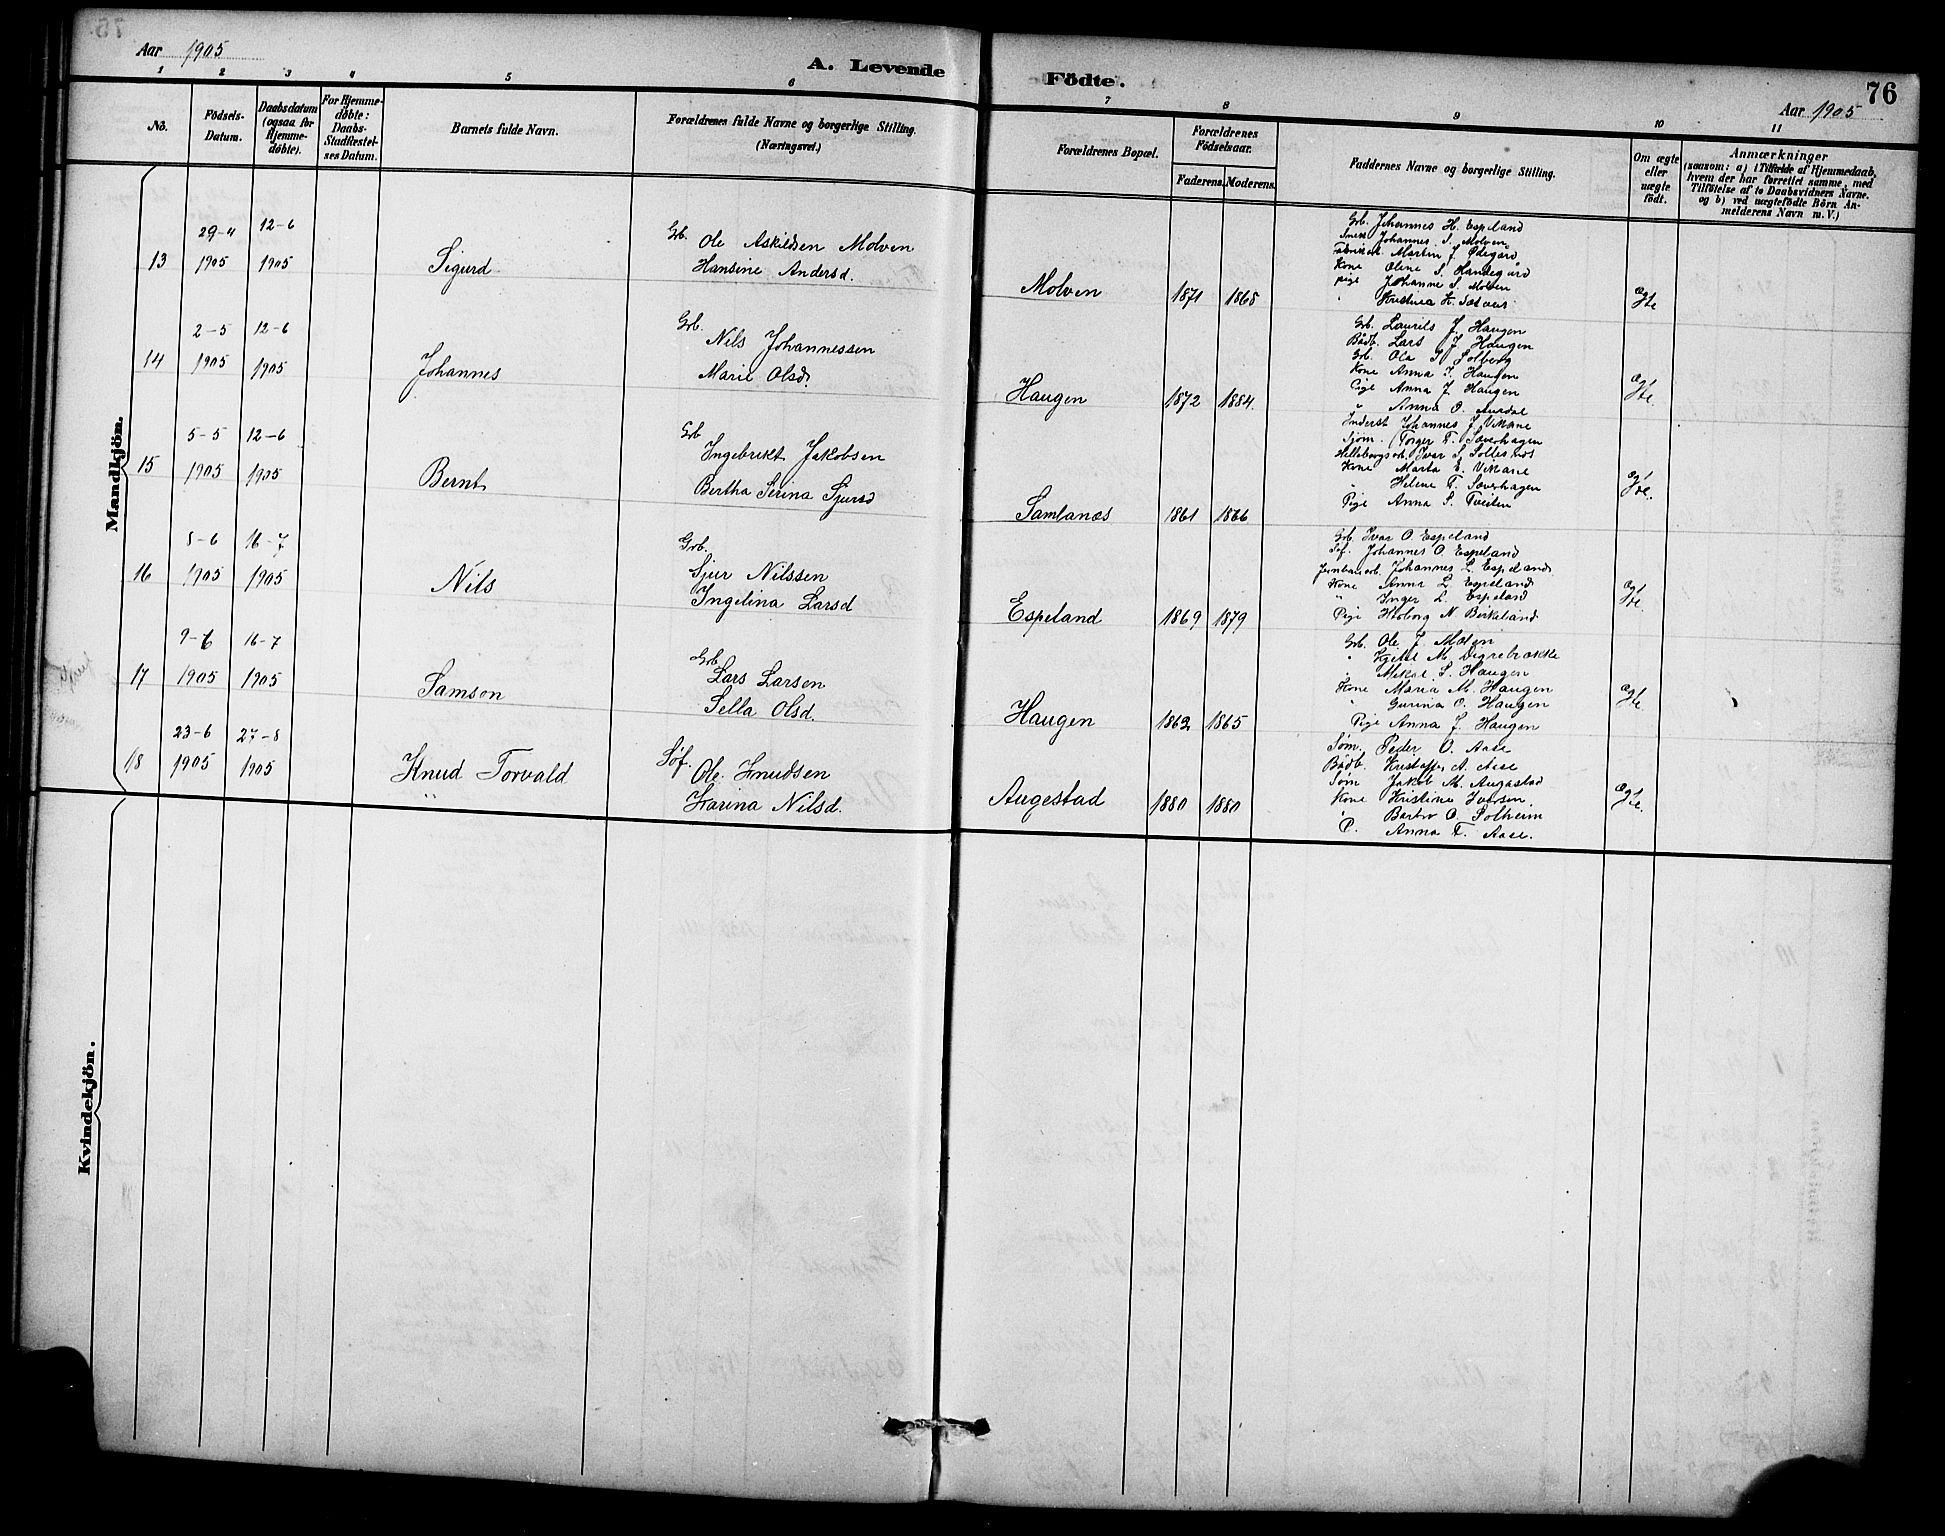 Aar 1905
A. Levende
Födte.
76
Aar 1905
1 2 3 4 5 6 7 8 9 10 11
No.
Födsels-Datum.
Daabsdatum (ogsaa for Hjemme-döbte).
For Hjemme-döbte: Daabs-Stadfæstel-ses Datum.
Barnets fulde Navn.
Forældrenes fulde Navne og borgerlige Stilling.
(Næringsvei.)
Forældrenes Bopæl.
Forældrenes Födselsaar.
Faderens. Moderens.
Faddernes Navne og borgerlige Stilling.
Om ægte eller uægte födt.
Anmærkninger
(saasom: a) i Tilfælde af Hjemmedaab,
hvem der har forrettet samme, med
Tilföielse af to Daabsvidners Navne.
og b) ved uægtefödte Börn An-
melderens Navn m. V.)
Mandkjön.
13
29-4 1905
12-6 1905
Sigurd
Grb. Ole Askildsen Molven
Hansine Andersd.
Molven
1871 1865
Grb. Johannes H. Espeland
Johannes S. Molven
Fabrikarb. Martin J. Ødegård
Kone Oline S. Handegård
pige Johanne S. Molven
" Kristina H.
Ægte
14
2-5 1905
12-6 1905
Johannes
Grb. Nils Johannessen
Marie Olsd.
Haugen
1872 1884.
Grb. Laurits J. Haugen
Bådb. Lars J. Haugen
Grb. Ola J. Solberg
Kone Anna J. Haugen
Pige Anna J. Haugen
" Anna O. Aurdal
Ægte.
15
5-5 1905
12-6 1905
Bernt
Grb Ingebrikt Jakobsen
Bertha Serina Sjursd
Samlanæs
1861 1866
Inderst Johannes J. Vikane
Sjöm. Torger T. Sæverhagen
Ivar S.
Kone Marta E. Vikane
" Helene T. Sæverhagen
Pige Anna S. Tveiten
Ægte.
16
8-6 1905
16-7 1905
Nils
Grb.
Sjur Nilssen
Ingelina Larsd
Espeland
1869 1879
Grb. Ivar O. Espeland
Søf. Johannes O. Espeland
Jernbanearb. Johannes L. Espeland
Kone Anna L. Espeland
" Inger L. Espeland
Pige N. Birkeland
Ægte.
17
9-6 1905
16-7 1905
Samson
Grb Lars Larsen
Sella Olsd.
Haugen
1862 1865
Grb. Ole J. Mælen
" Kjetil M. Digrebrække
" Mikal S. Haugen
Kone Maria M. Haugen
" Gurina O. Haugen
Pige Anna J. Haugen
Ægte
18
23-6 1905
27-8 1905
Knud Torvald
Søf. Ole Knudsen
Karina Nilsd.
Augestad
1880 1880
Søm. Peder O. Aase
Bådb Kristoffer A. Aase
Søm Jakob M. Augestad
Kone Kristine Iversen.
" Barbro O. Solheim
P. Anna T. Aase.
Ægte.
Kvindekjön.